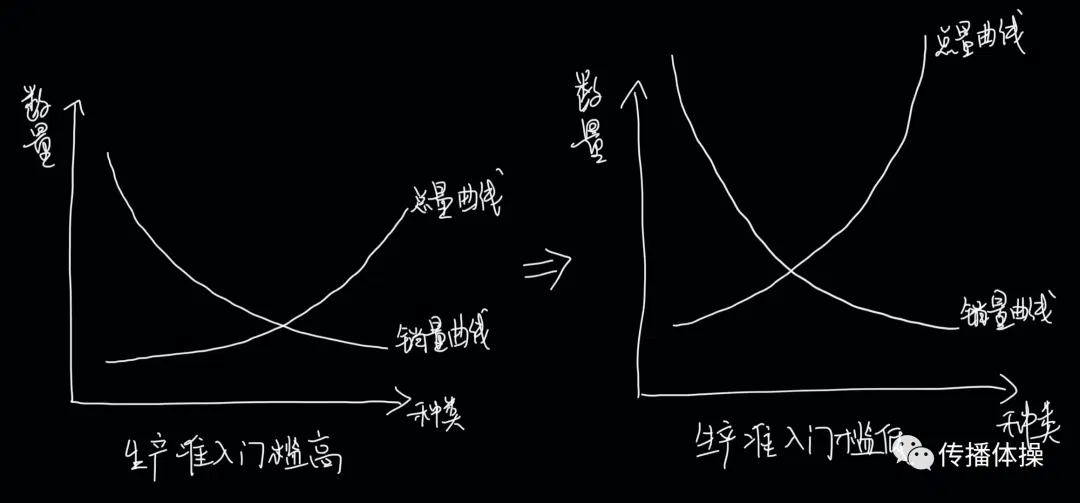 数量
总量曲线
销量曲线
种类
生产准入门槛高
数量
总量曲线
销量曲线
种类
生产准入门槛低
传播体操